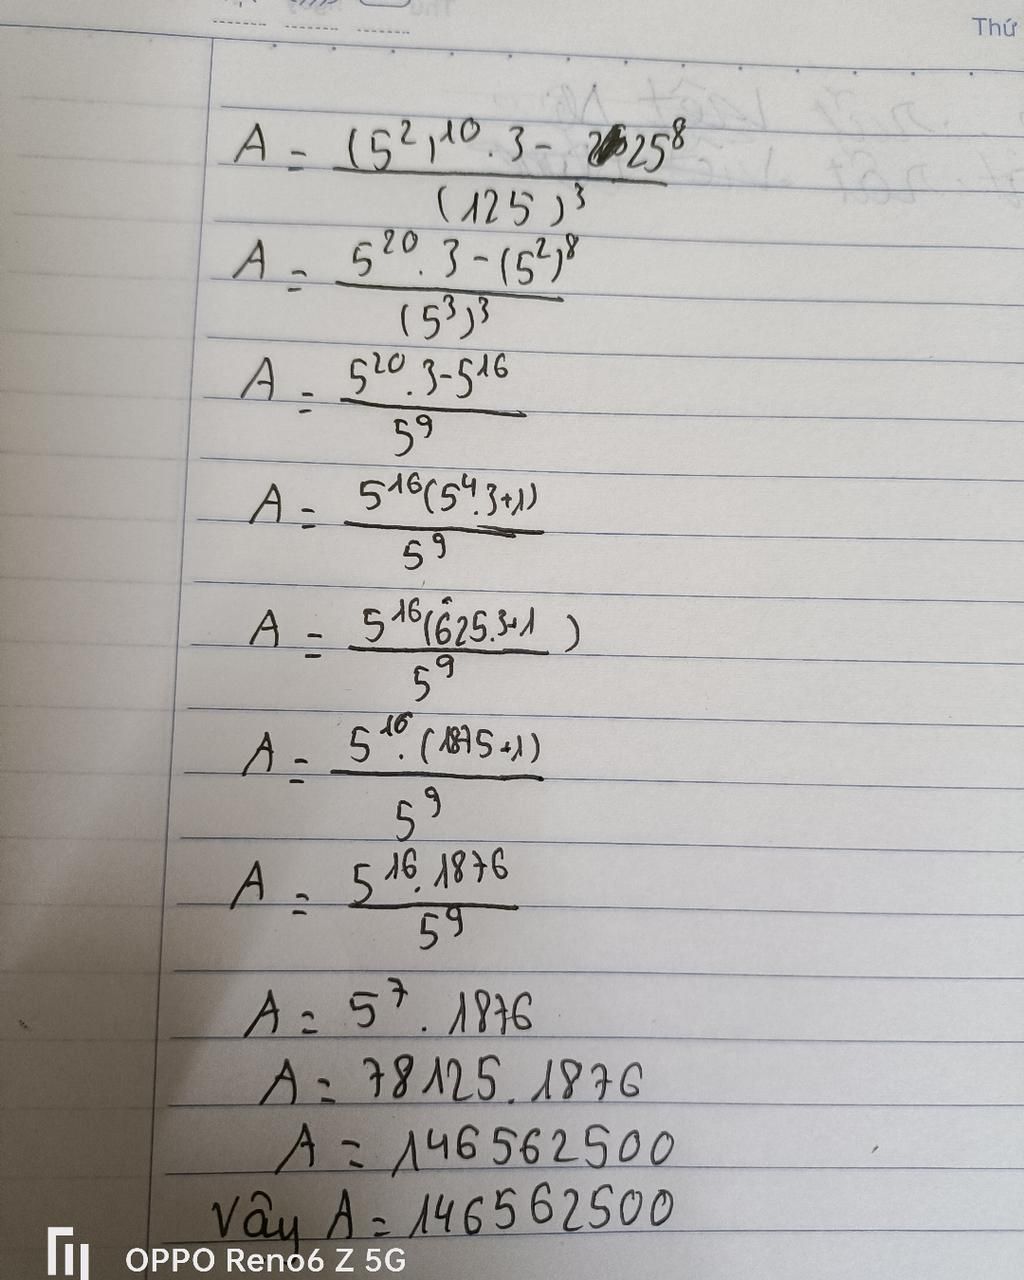 Thứ
A = (5²)¹⁰ . 3 - 25⁸ / (125)³
A = 5²⁰ . 3 - (5²)⁸ / (5³)³
A = 5²⁰ . 3 - 5¹⁶ / 5⁹
A = 5¹⁶(5⁴. 3+1) / 5⁹
A = 5¹⁶(625.3+1) / 5⁹
A = 5¹⁶. (1875+1) / 5⁹
A = 5¹⁶. 1876 / 5⁹
A = 5⁷ . 1876
A = 78125 . 1876
A = 146562500
Vậy A = 146562500
OPPO Reno6 Z 5G